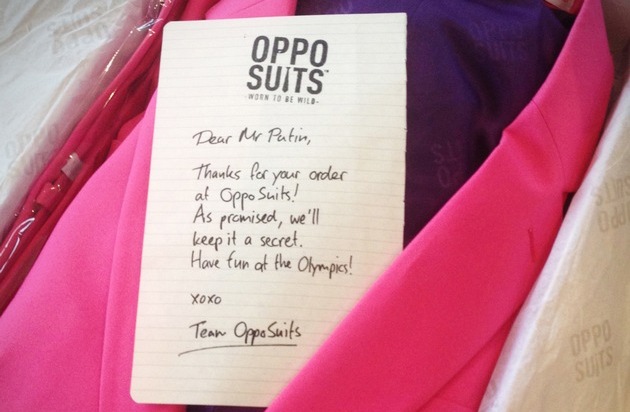 OPPO
SUITS™
-WORN TO BE WILD-
Dear Mr Putin,
Thanks for your order
at OppoSuits!
As promised, we'll
keep it a secret.
Have fun at the Olympics!
xoxo
Team OppoSuits
OPPO
SUITS
OPPO
SUITS